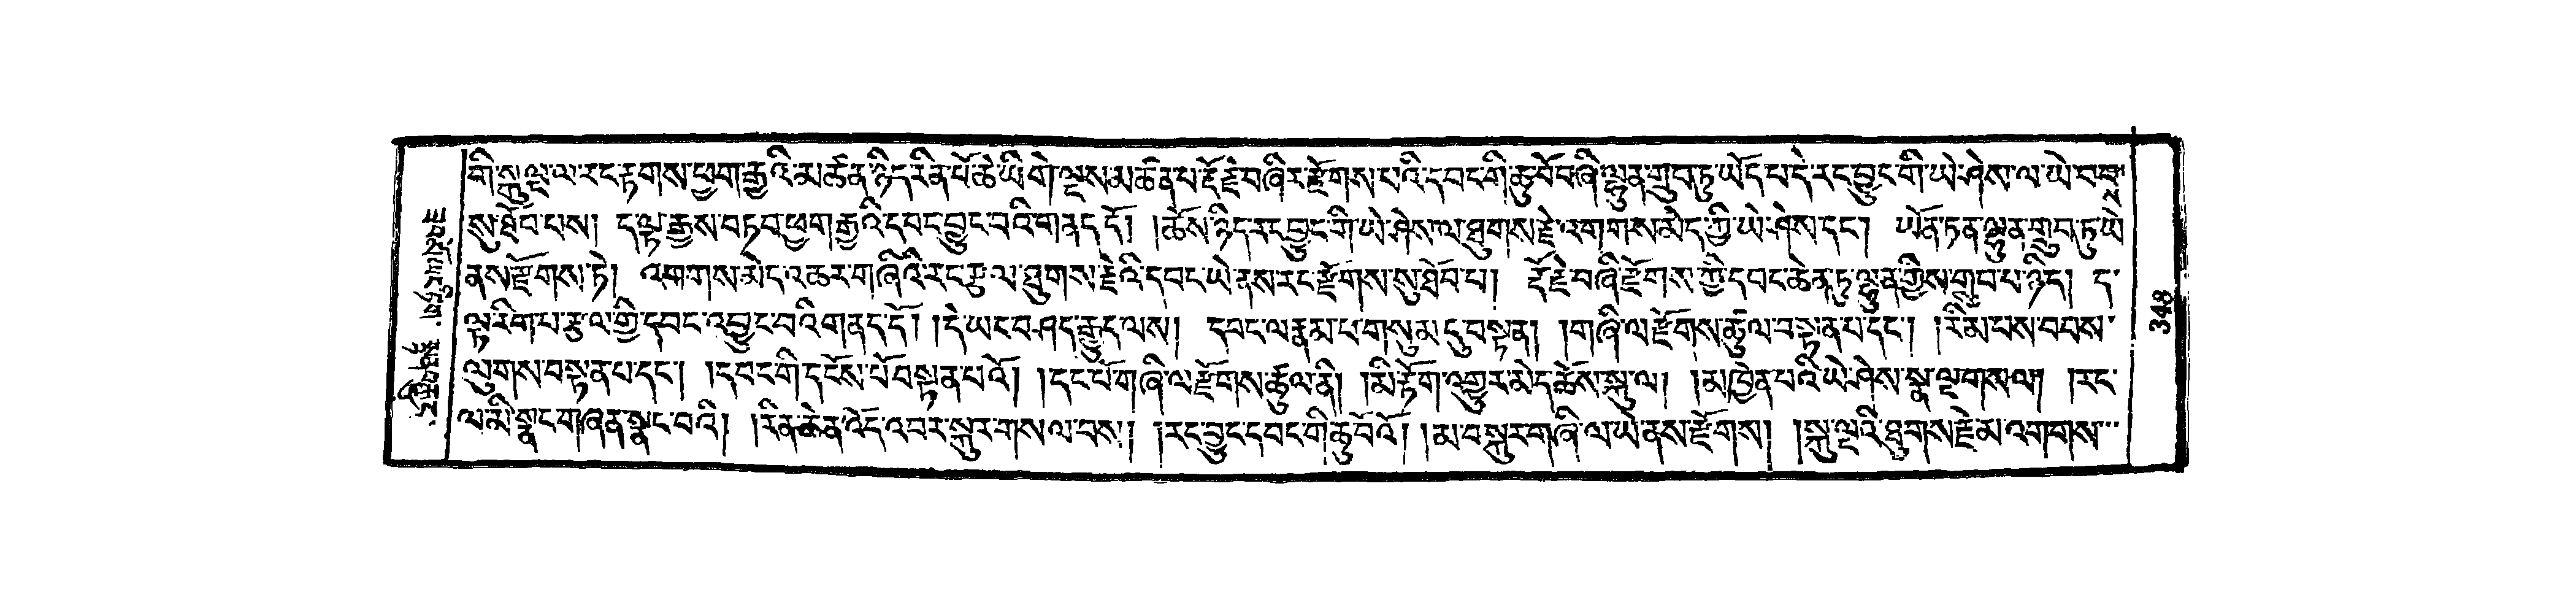 གི་སྐུ་ལྔ་ལ་རང་རྟགས་ཕྱག་རྒྱའི་མཚན་ཉིད་རིན་པོ་ཆེ་ཡི་གེ་ལྔས་མཚན་པ་རྡོ་རྗེ་བཞིར་རྫོགས་པའི་དབང་གི་ཆུ་བོ་བཞི་ལྷུན་གྲུབ་ཏུ་ཡོད་པ་དེ་རང་བྱུང་གི་ཡེ་ཤེས་ལ་ཡེ་བབླ
སུ་ཐོབ་པས། ད་ལྟ་རྒྱས་བཏབ་ཕྱག་རྒྱའི་དབང་བྱུང་བའི་གནད་དོ། །ཆོས་ཉིད་རང་བྱུང་གི་ཡེ་ཤེས་ལ་ཐུགས་རྗེ་འགགས་མེད་ཀྱི་ཡེ་ཤེས་དང༌། ཡོན་ཏན་ལྷུན་གྲུབ་ཏུ་ཡེ
ནས་རྫོགས་ཏེ། འགགས་མེད་འཆར་གཞིའི་རང་རྩལ་ཐུགས་རྗེའི་དབང་ཡེ་ནས་རང་རྫོགས་སུ་ཐོབ་པ། རྡོ་རྗེ་བཞི་རྫོགས་ཀྱི་དབང་ཆེན་ཏུ་ལྷུན་གྱིས་གྲུབ་པ་ཉིད། ད་
ལྟ་རིག་པ་རྩལ་གྱི་དབང་འབྱུང་བའི་གནད་དོ། །དེ་ཡང་བཤད་རྒྱུད་ལས། དབང་ལ་རྣམ་པ་གསུམ་དུ་བསྟན། །གཞི་ལ་རྫོགས་ཚུལ་བསྟན་པ་དང༌། །རིམ་པས་བབས་
ལུགས་བསྟན་པ་དང༌། །དབང་གི་དངོས་པོ་བསྟན་པའོ། །དང་པོ་གཞི་ལ་རྫོགས་ཚུལ་ནི། །མི་རྟོག་འགྱུར་མེད་ཆོས་སྐུ་ལ། །མཁྱེན་པའི་ཡེ་ཤེས་སྣ་ལྔ་གསལ། །རང་
ལ་མི་སྣང་གཞན་སྣང་བའི། །རིན་ཆེན་འོད་འབར་སྐུར་གསལ་བས། །རང་བྱུང་དབང་གི་ཆུ་བོའོ། །མ་བསྐུར་གཞི་ལ་ཡེ་ནས་རྫོགས། །སྐུ་ལྔའི་ཐུགས་རྗེ་མ་འགགས་